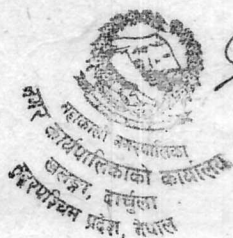 महाकाली नगरपालिका
नगर कार्यपालिकाको कार्यालय
खलङ्गा, दार्चुला
सुदूरपश्चिम प्रदेश, नेपाल